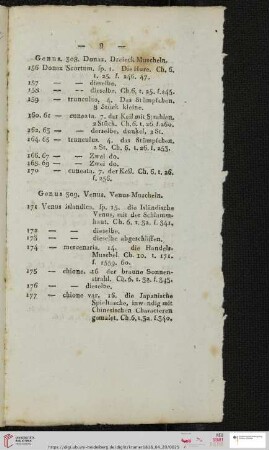 — 9 —
Genus. 308. Donax. Dreieck-Muscheln.
156 Donax Scortum, sp. 1. Die Hure. Ch. 6,
t. 25. f. 246. 47.
157 — — dieselbe.
158 — — dieselbe. Ch. 6, t. 25. f. 245.
159 — trunculus, 4. Das Stümpfchen.
3 Stück kleine.
160. 61 — cuneata, 7. der Keil mit Strahlen.
2 Stück. Ch. 6, t. 26. f. 260.
162. 63 — — derselbe, dunkel, 2 St.
164. 65 — trunculus, 4. das Stümpfchen.
2 St. Ch. 6, t. 26. f. 253.
166. 67 — — Zwei do.
168. 69 — — Zwei do.
170 — cuneata. 7. der Keil. Ch. 6, t. 26.
f. 256.
Genus 309, Venus, Venus-Muscheln.
171 Venus islandica, sp. 15. die Isländische
Venus, mit der Schlamm-
haut. Ch. 6, t. 32. f. 341.
172 — — dieselbe.
173 — — dieselbe abgeschliffen.
174 — mercenaria, 14. die Handels-
Muschel. Ch. 10. t. 171.
f. 1659. 60.
175 — chione, 16. der braune Sonnen-
strahl. Ch. 6, t. 32. f. 343.
176 — — dieselbe.
177 — chione var. 16. die Japanische
Spieltasche, inwendig mit
Chinesischen Characteren
gemalet. Ch. 6, t. 32. f. 340.